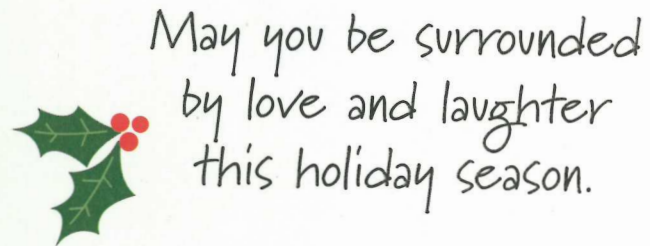 May you be surrounded
by love and laughter
this holiday season.